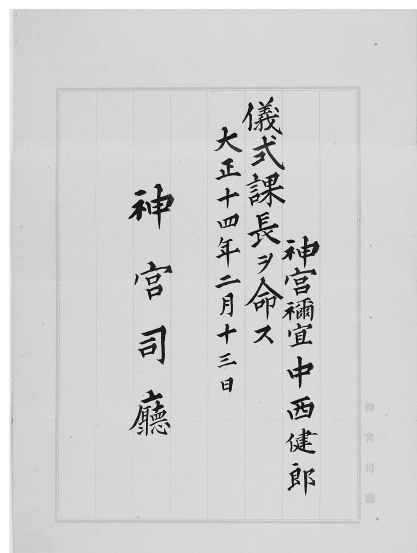 神宮禰宜中西健郎
儀式課長ヲ命ス
大正十四年二月十三日
神宮司廳
神宮司廳